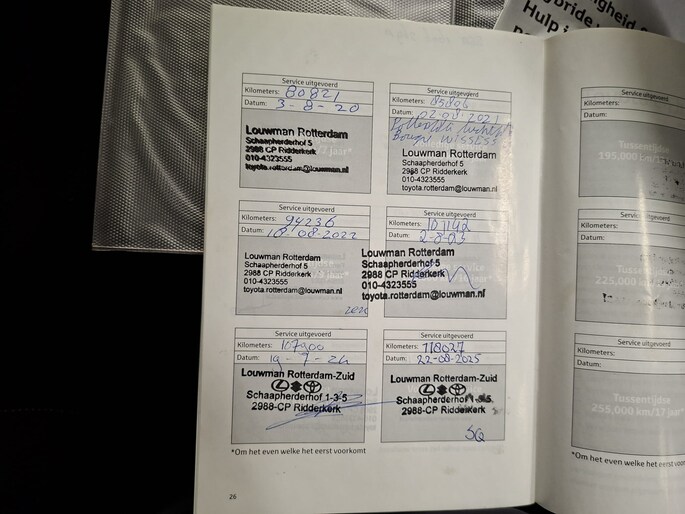 igheid
bride
Hulp
Service uitgevoerd
Kilometers: 80821
Datum: 3-8-20
Louwman Rotterdam
Schaapherderhof 5
2988 CP Ridderkerk
010-4323555
toyota.rotterdam@louwman.nl
Service uitgevoerd
Kilometers: 85806
Datum: 02-08-2021
Bougie
Louwman Rotterdam
Schaapherderhof 5
2988 CP Ridderkerk
010-4323555
toyota.rotterdam@louwman.nl
94236
18-08-2022
Louwman Rotterdam
Schaapherderhof 5
2988 CP Ridderkerk
010-4323555
toyota.rotterdam@louwman.nl
Service uitgevoerd
Kilometers: 101142
Datum: 2-8-23
Louwman Rotterdam
Schaapherderhof 5
2988 CP Ridderkerk
010-4323555
toyota.rotterdam@louwman.nl
Service uitgevoerd
Kilometers: 107900
Datum: 19-7-24
Louwman Rotterdam-Zuid
Schaapherderhof 1-3-5
2988-CP Ridderkerk
Service uitgevoerd
Kilometers: 118027
Datum: 22-08-2025
Louwman Rotterdam-Zuid
Schaapherderhof 1-3-5
2988-CP Ridderkerk
SQ
*Om het even welke het eerst voorkomt
26
Service uitgevoerd
Kilometers:
Datum:
Tussentijdse
195,000 km/
Service uitgevoerd
Kilometers:
Datum:
Tussentijdse
225,000 km/
Service uitgevoerd
Kilometers:
Datum:
Tussentijdse
255,000 km/17 jaar*
*Om het even welke het eerst voor